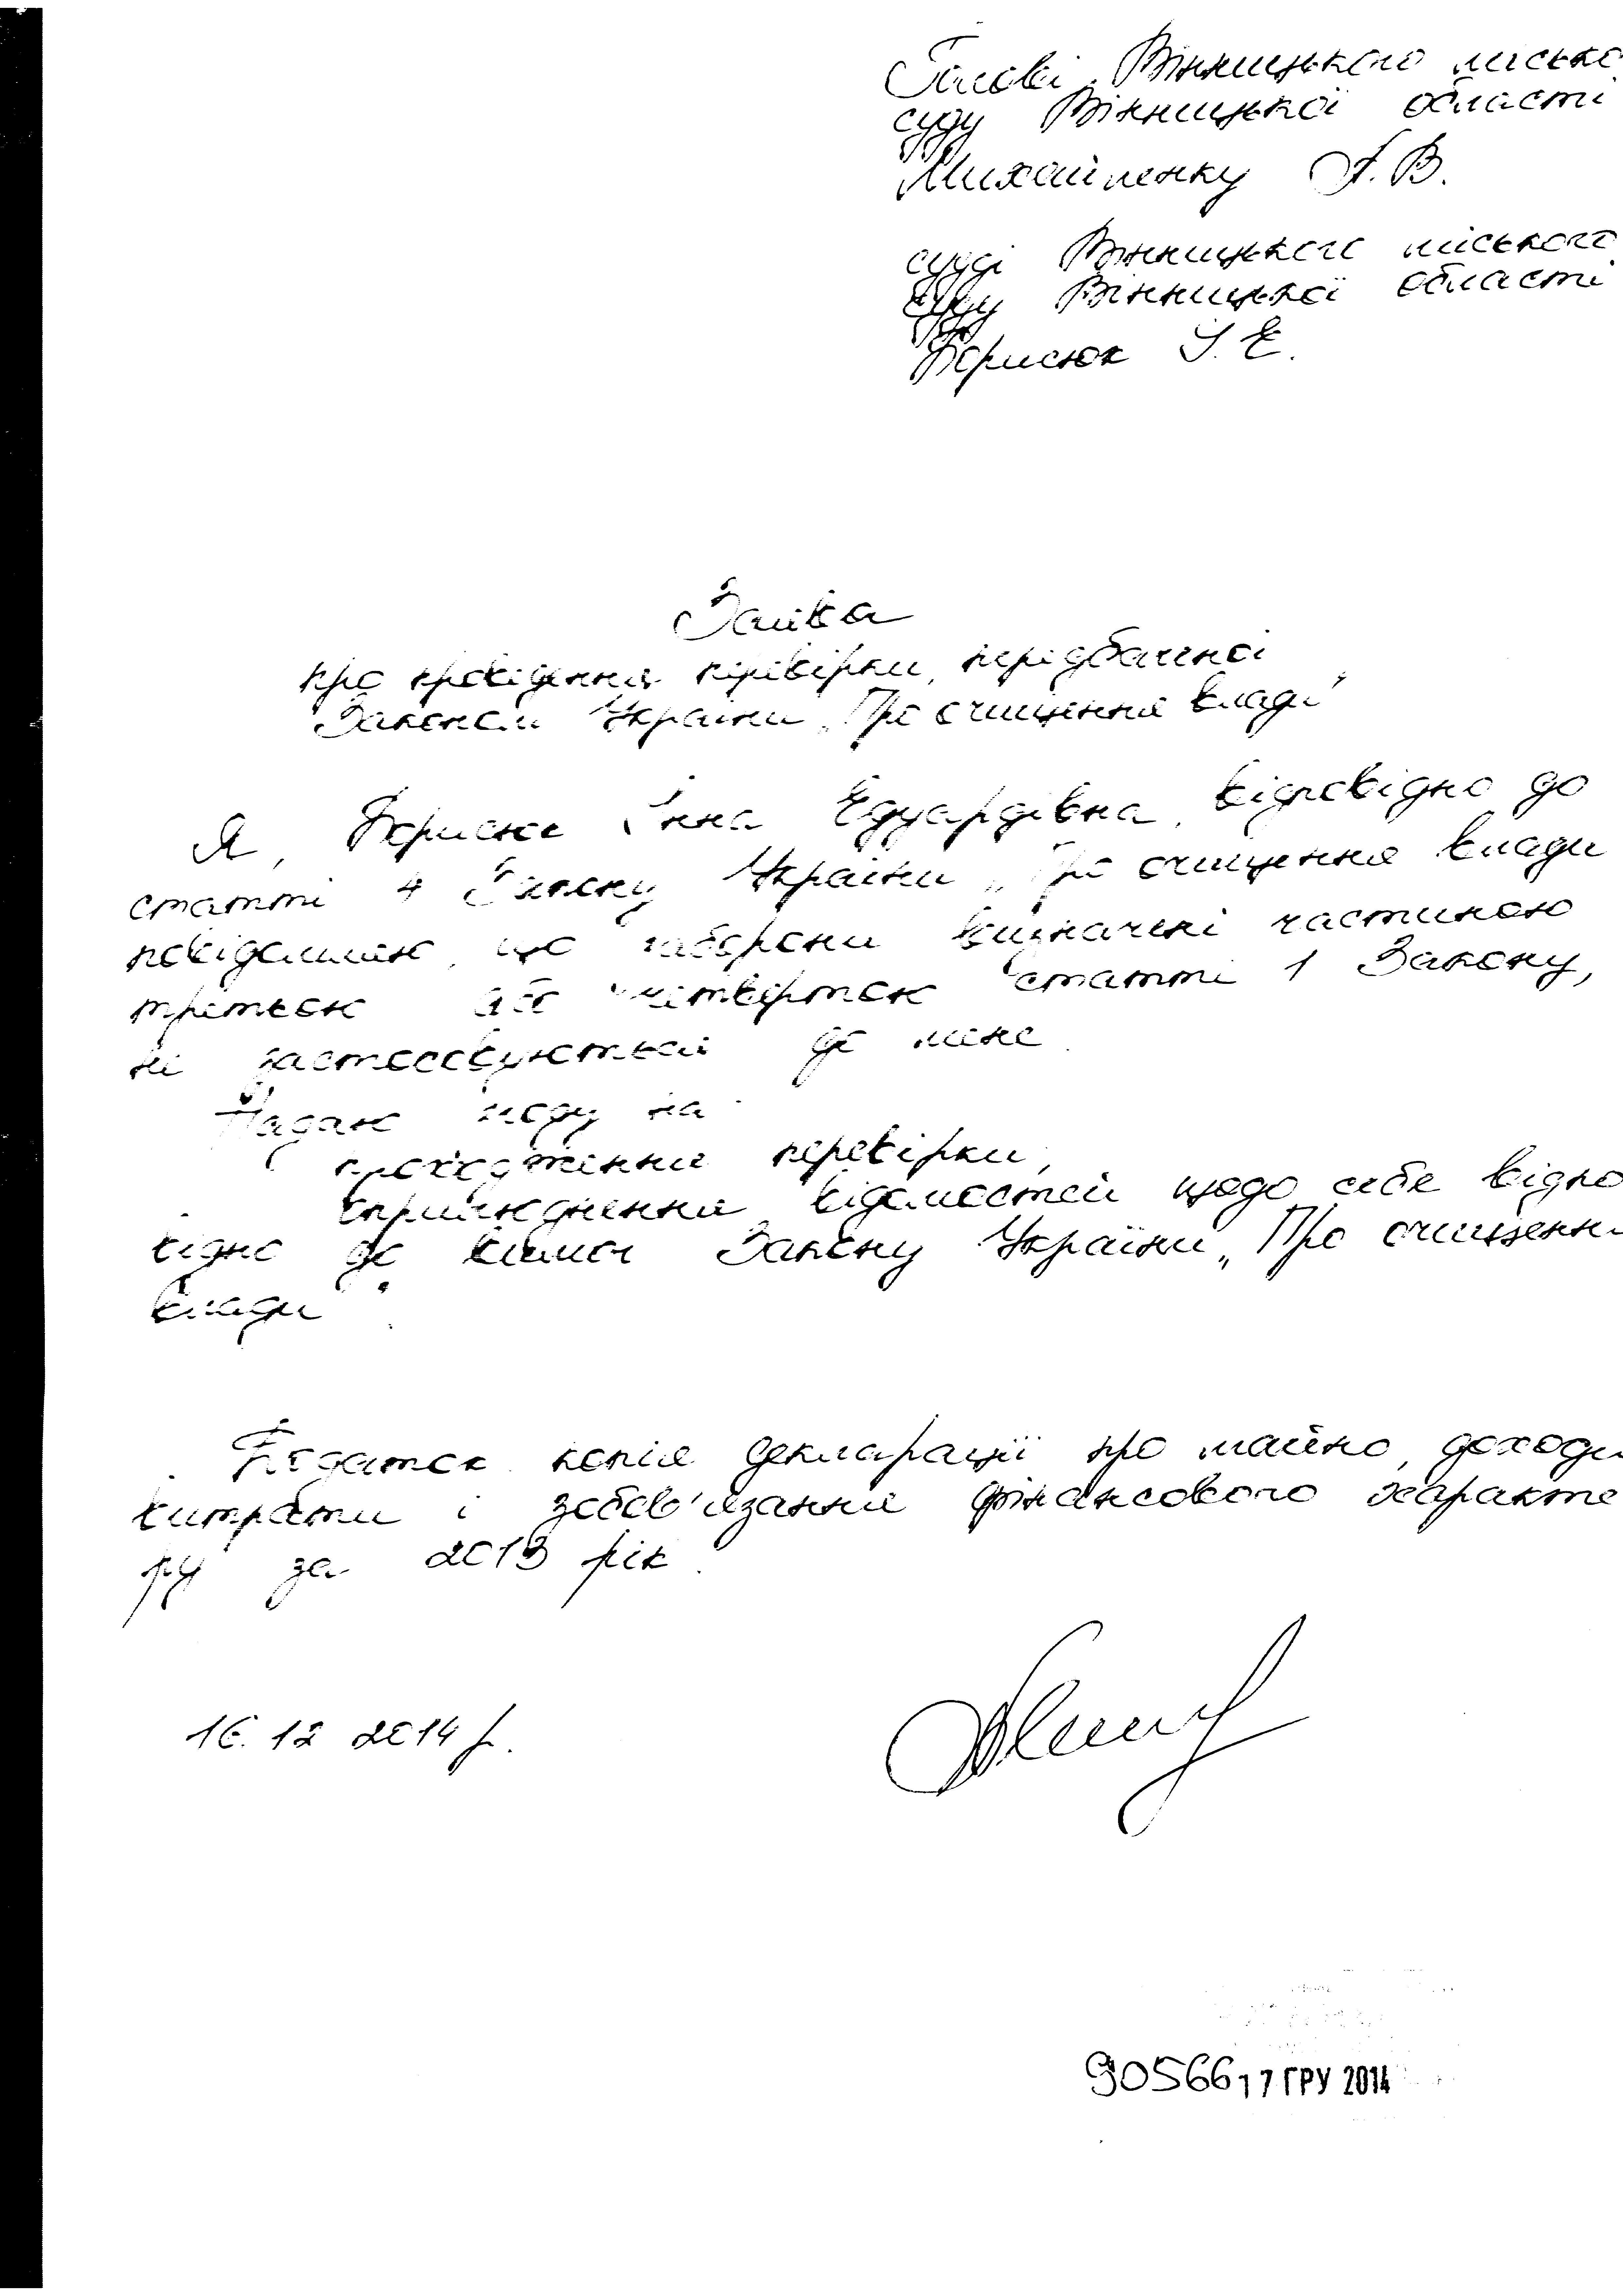 Голові Вінницького місько
суду Вінницької області
Михайленку А.В.
судді Вінницького міського
суду Вінницької області
Борисюк І.Е.
Заява
про проведення перевірки, передбаченої
Законом України „Про очищення влади"
Я, Борисюк Інна Едуардівна, відповідно до
статті 4 Закону України „Про очищення влади
повідомляю, що заборони визначені частиною
третьою або четвертою статті 1 Закону,
не застосовуються до мене.
Надаю згоду на:
проходження перевірки,
оприлюднення відомостей щодо себе відпо
відно до вимог Закону України „Про очищенн
влади".
Додаток копія декларації про майно, доходи
витрати і зобов'язання фінансового характе
ру за 2013 рік.
16.12 2014 р.
90566 17 ГРУ 2014